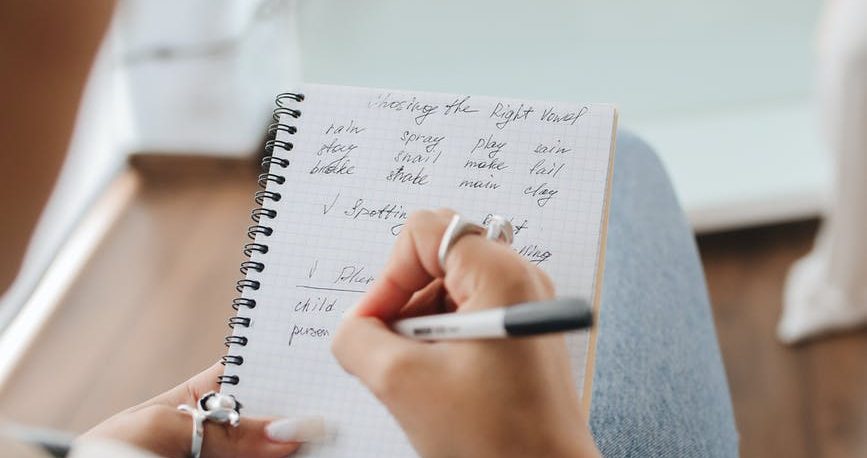 Chosing the Right Vowel
rain spray play sain
stay snail make fail
brake shake main clay
✓ Spotting
✓
child
person